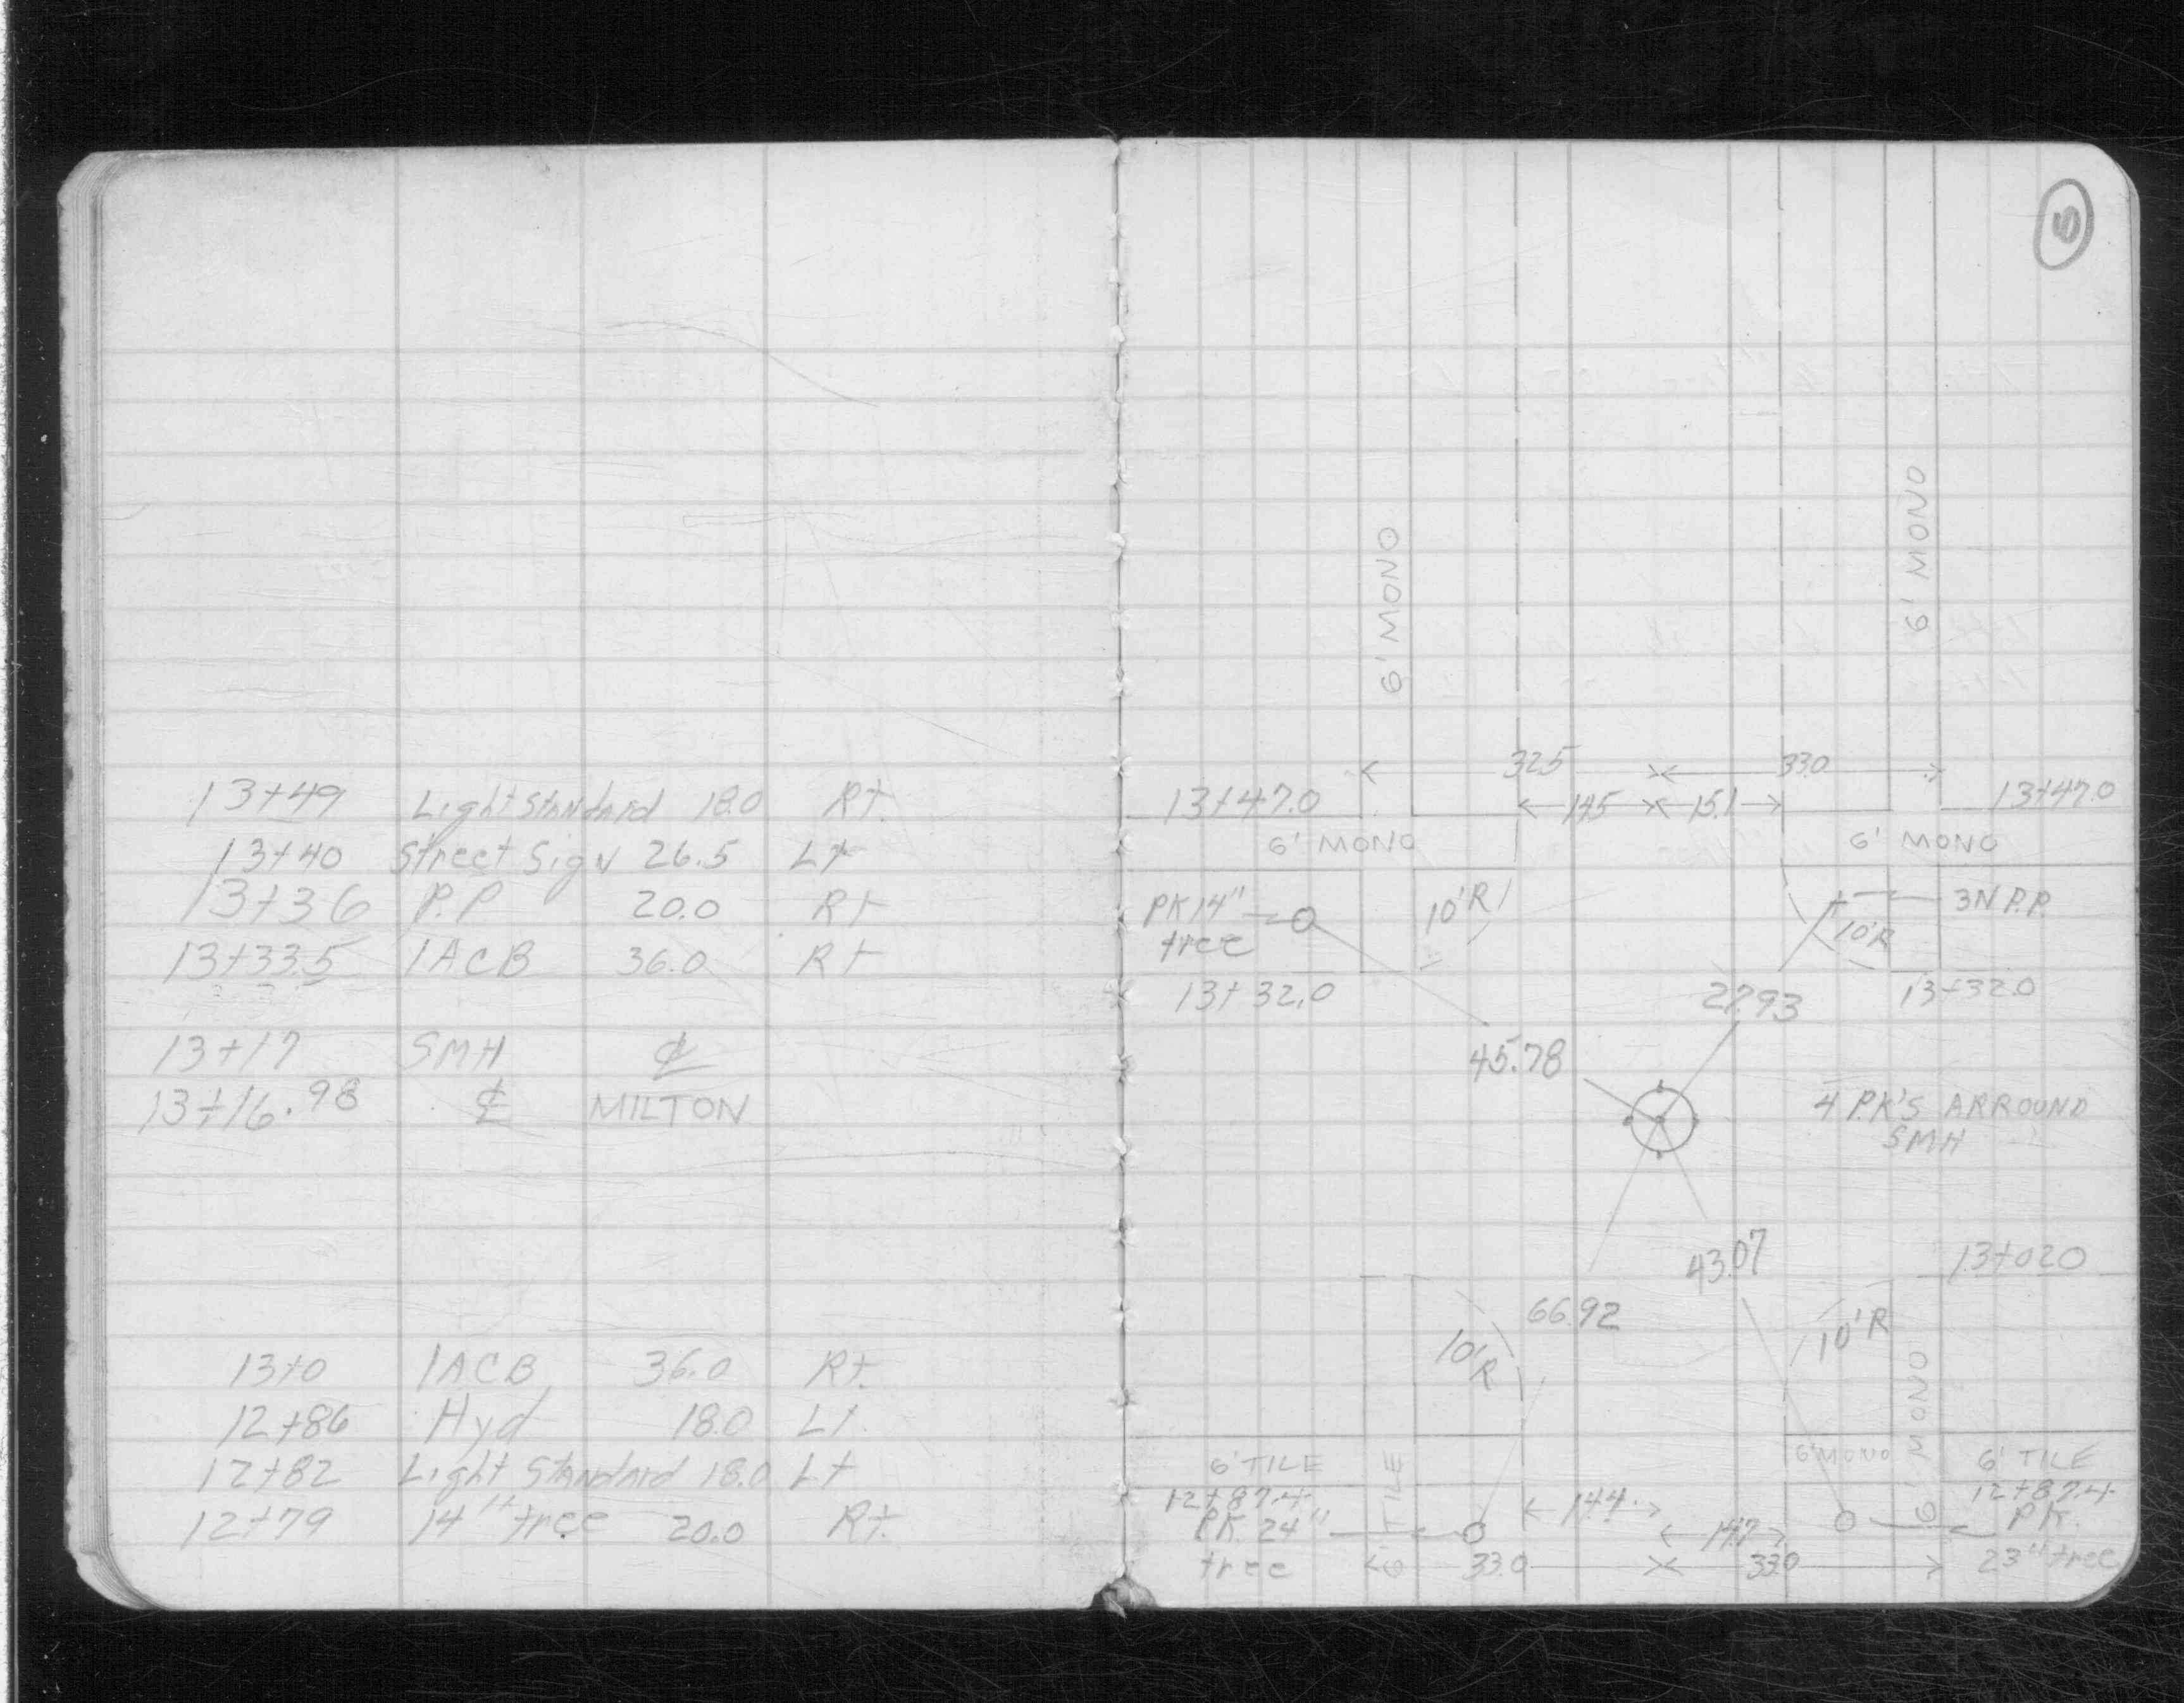 13+49 Light Standard 18.0 Rt.
13+40 Street Sign 26.5 Lt
13+36 P.P 20.0 Rt
13+33.5 1ACB 36.0 Rt
13+17 SMH ₵
13+16.98 ₵ MILTON
13+0 1ACB 36.0 Rt.
12+86 Hyd 18.0 Lt.
12+82 Light Standard 18.0 Lt
12+79 14" tree 20.0 Rt.
5
6' MONO
6' MONO
32.5 33.0
13+47.0 14.5 15.1 13+47.0
6' MONO 6' MONO
PK 14" 10'R 3N P.P.
tree 10'R
13+32.0 27.93 13+32.0
45.78
4 P.K'S ARROUND
SMH
43.07 13+02.0
66.92
10'R 10'R
6' MONO
6' TILE 6' TILE 6' MONO 6' TILE
12+87.4 14.4 12+87.4
PK. 24" 14.7 PK.
tree 33.0 33.0 23" tree